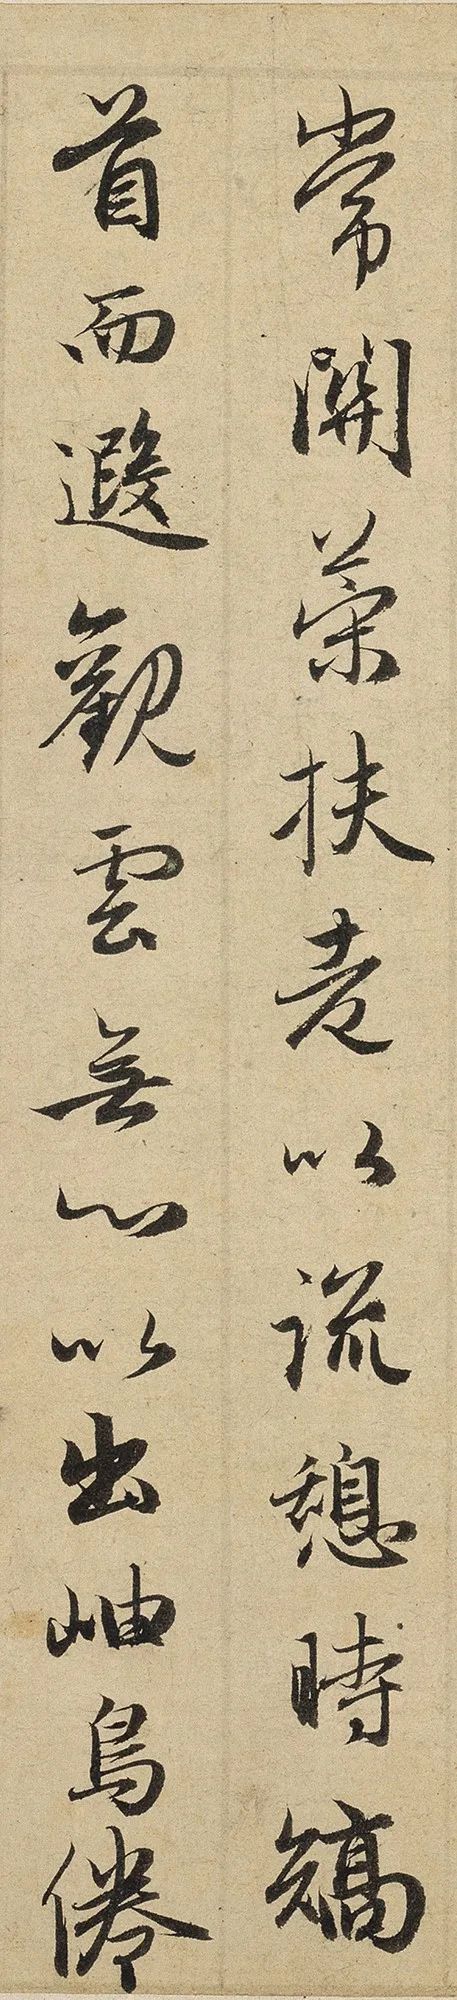 常關策扶老以流憩時矯
首而遐觀雲無心以出岫鳥倦